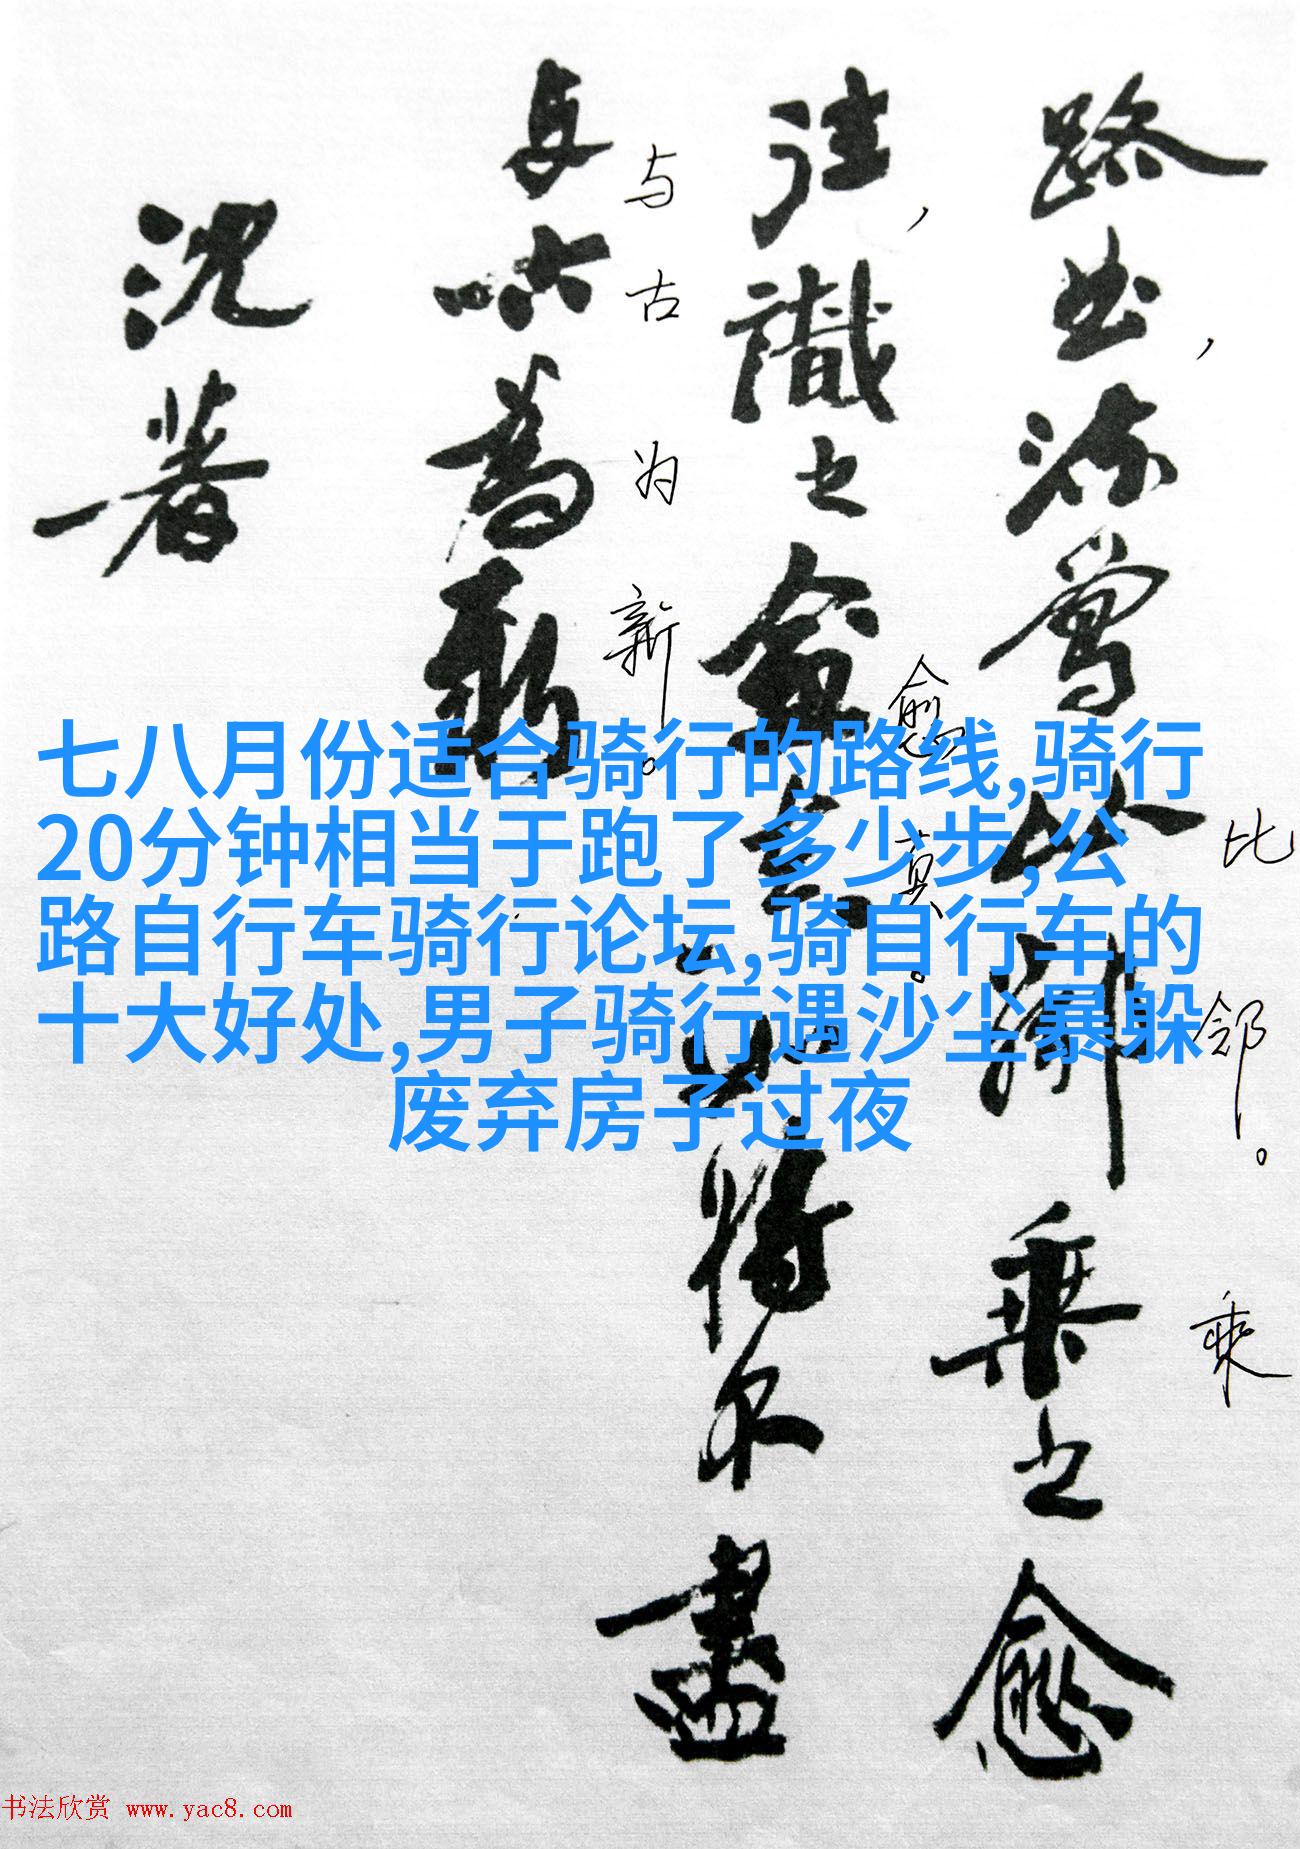 路曲流鶯比鄰乘之愈
，比邻。乘
往識之愈真如將不盡
，愈真。
与古為新
与古为新。
沈著
七八月份适合骑行的路线,骑行
20分钟相当于跑了多少步,公
路自行车骑行论坛,骑自行车的
十大好处,男子骑行遇沙尘暴躲
废弃房子过夜
书法欣赏 www.yac8.com